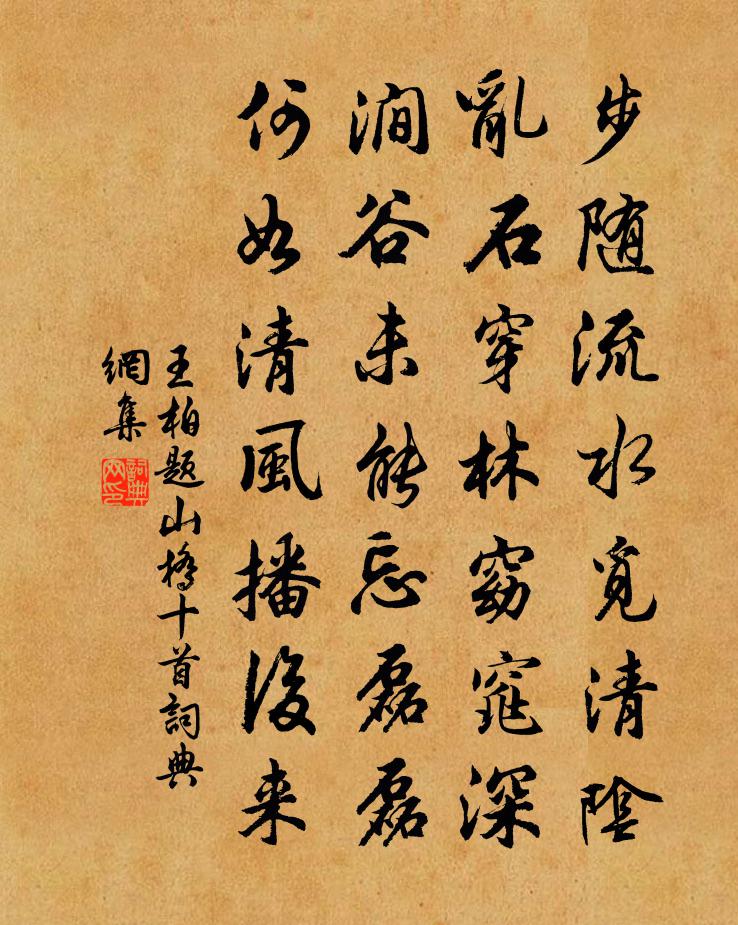 步随流水覓清陰
亂石穿林窈窕深
澗谷未能忘磊磊
何如清風播後来
王柏题山橋十首詞典
網集
詞典網印